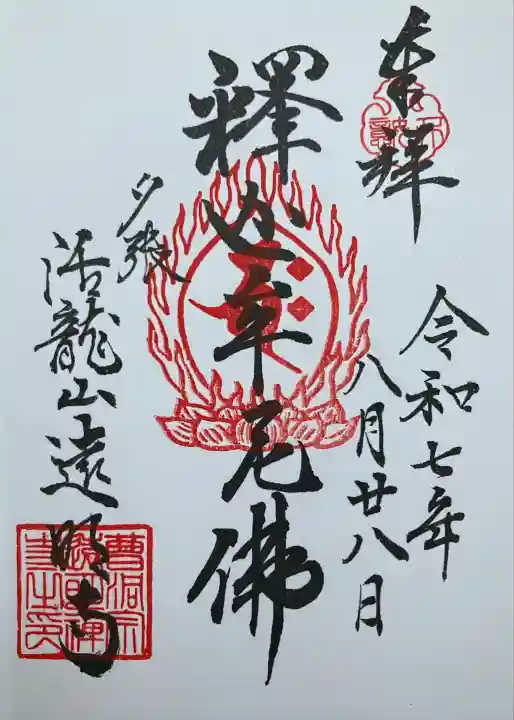 奉拝
令和七年
八月廿八日
釋迦牟尼佛
夕張
活龍山遠明寺